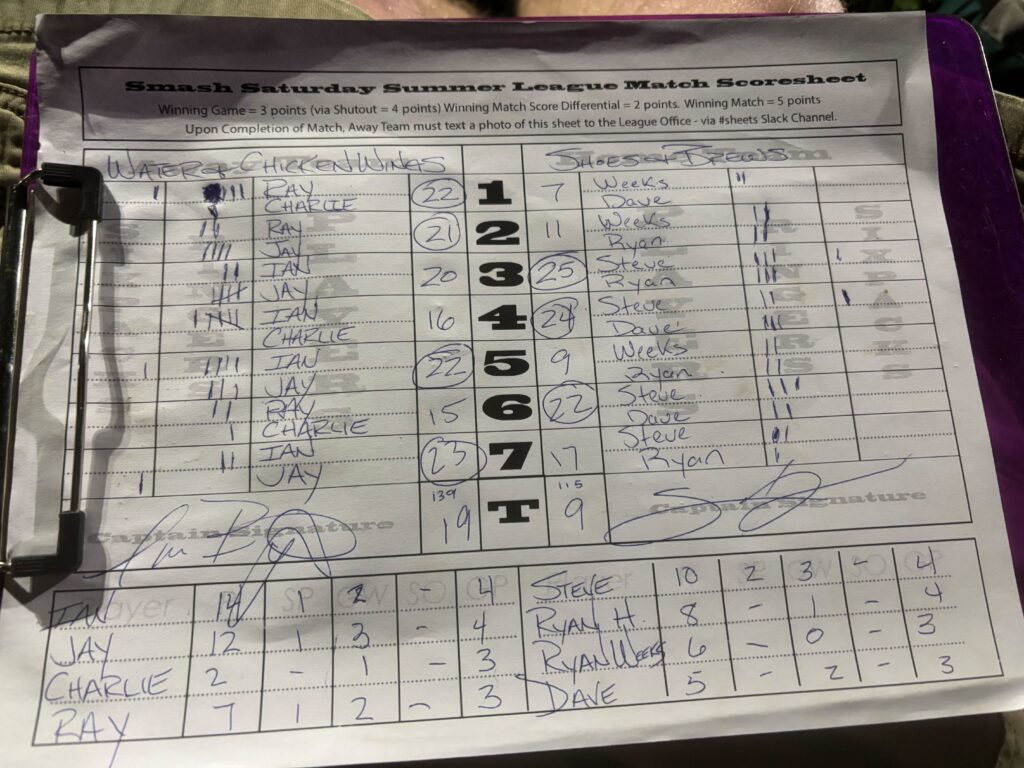 Smash Saturday Summer League Match Scoresheet
Winning Game = 3 points (via Shutout = 4 points) Winning Match Score Differential = 2 points. Winning Match = 5 points
Upon Completion of Match, Away Team must text a photo of this sheet to the League Office - via #sheets Slack Channel.
WATER & CHICKEN WINGS SHOES & BREWS
RAY 22 1 7 Weeks
CHARLIE Dave
RAY 21 2 11 Weeks
JAY Ryan
IAN 20 3 25 Steve
JAY Ryan
IAN 16 4 24 Steve
CHARLIE Dave
IAN 22 5 9 Weeks
JAY Ryan
RAY 15 6 22 Steve
CHARLIE Dave
IAN 23 7 17 Steve
JAY Ryan
139 115
19 T 9
Captain Signature Captain Signature
Player SP GW SO GP Player SP GW SO GP
IAN 14 1 2 - 4 STEVE 10 2 3 - 4
JAY 12 1 3 - 4 RYAN H. 8 - 1 - 4
CHARLIE 2 - 1 - 3 RYAN WEEKS 6 - 0 - 3
RAY 7 1 2 - 3 DAVE 5 - 2 - 3